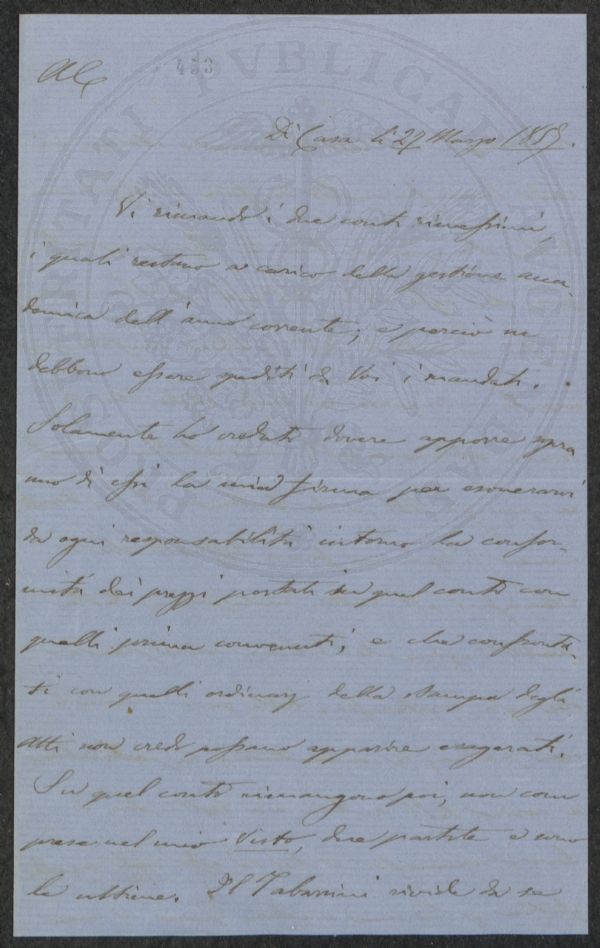 433
Di Casa li 27 Marzo 1857.
Vi rimando i due conti rimessimi,
i quali restano a carico della gestione acca-
demica dell'anno corrente; e perciò ne
debbono essere spediti da Voi i mandati.
Solamente ho creduto dovere apporre sopra
uno di essi la mia firma per esonerarvi
da ogni responsabilità intorno la confor-
mità dei prezzi portati in quel conto con
quelli prima convenuti, e che confronta-
ti con quelli ordinarj della stampa degli
Atti non credo possano apparire esagerati.
In quel conto rimangono poi, non com
prese nel mio Visto, due partite e sono
le ultime. Il Tabarrini rivide da se